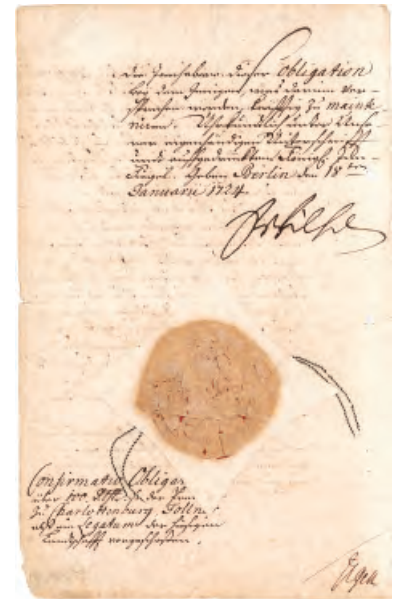 die Innhabere dieser Obligation
bey dem jenigen, was darin ver-
sprochen worden, kräfftig zu mainte
niren. Uhrkundlich unter Unse
rer eigenhändigen Unterschrifft
und aufgedrucktem Königl. Inn
Siegel. Geben Berlin den 18ten
Januarii 1724.
FrWilhelm
Confirmatio Obligat.
über 100 Rthl. so der
zu Charlottenburg,
als ein Legatum der
Landschafft vorgeschossen.
Ilgen